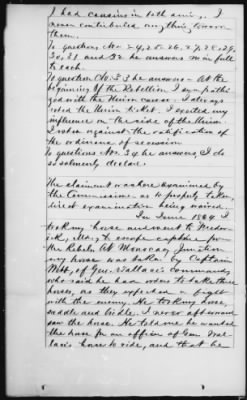 I had cousins in both armies. I
never contributed anything toward
them.
To questions, No. 24, 25, 26, 27, 28, 29,
30, 31 and 32 he answers no in full
to each.
To question No. 33 he answers - At the
beginning of the Rebellion I sympathi
zed with the Union cause. I always
voted the Union ticket. I exerted my
influence on the side of the Union.
I voted against the ratification of
the ordinance of secession
To questions No. 34 he answers, I do
so solemnly declare.
The claimant was here examined by
the Commissioner as to property taken,
direct examination being waived.
In June 1864 I
took my horse and went to Freder
ick, Md., to escape capture from
the Rebels. At Monocacy Junction
my horse was taken by Captain
Webb, of Gen. Wallace's command,
who said he had orders to take those
horses, as they expected a fight
with the enemy. He took my horse,
saddle and bridle. I never afterward
saw the horse. He told me he wanted
the horse for an officer of Gen. Wal-
lace's horse to ride, and that he